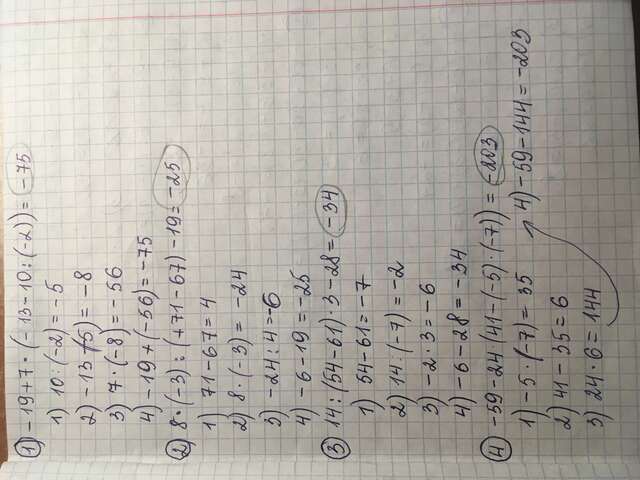 1) -19+7·(-13-10:(-2))= -75
1) 10:(-2)= -5
2) -13-(-5)= -8
3) 7·(-8)= -56
4) -19+(-56)= -75
2) 8·(-3):(+71-67)-19= -25
1) 71-67=4
2) 8·(-3)= -24
3) -24:4=-6
4) -6-19=-25
3) 14:(54-61)·3-28= -34
1) 54-61=-7
2) 14:(-7)=-2
3) -2·3=-6
4) -6-28=-34
4) -59-24(41-(-5)·(-7))= -203
1) -5·(-7)=35
2) 41-35=6
3) 24·6=144
4) -59-144=-203